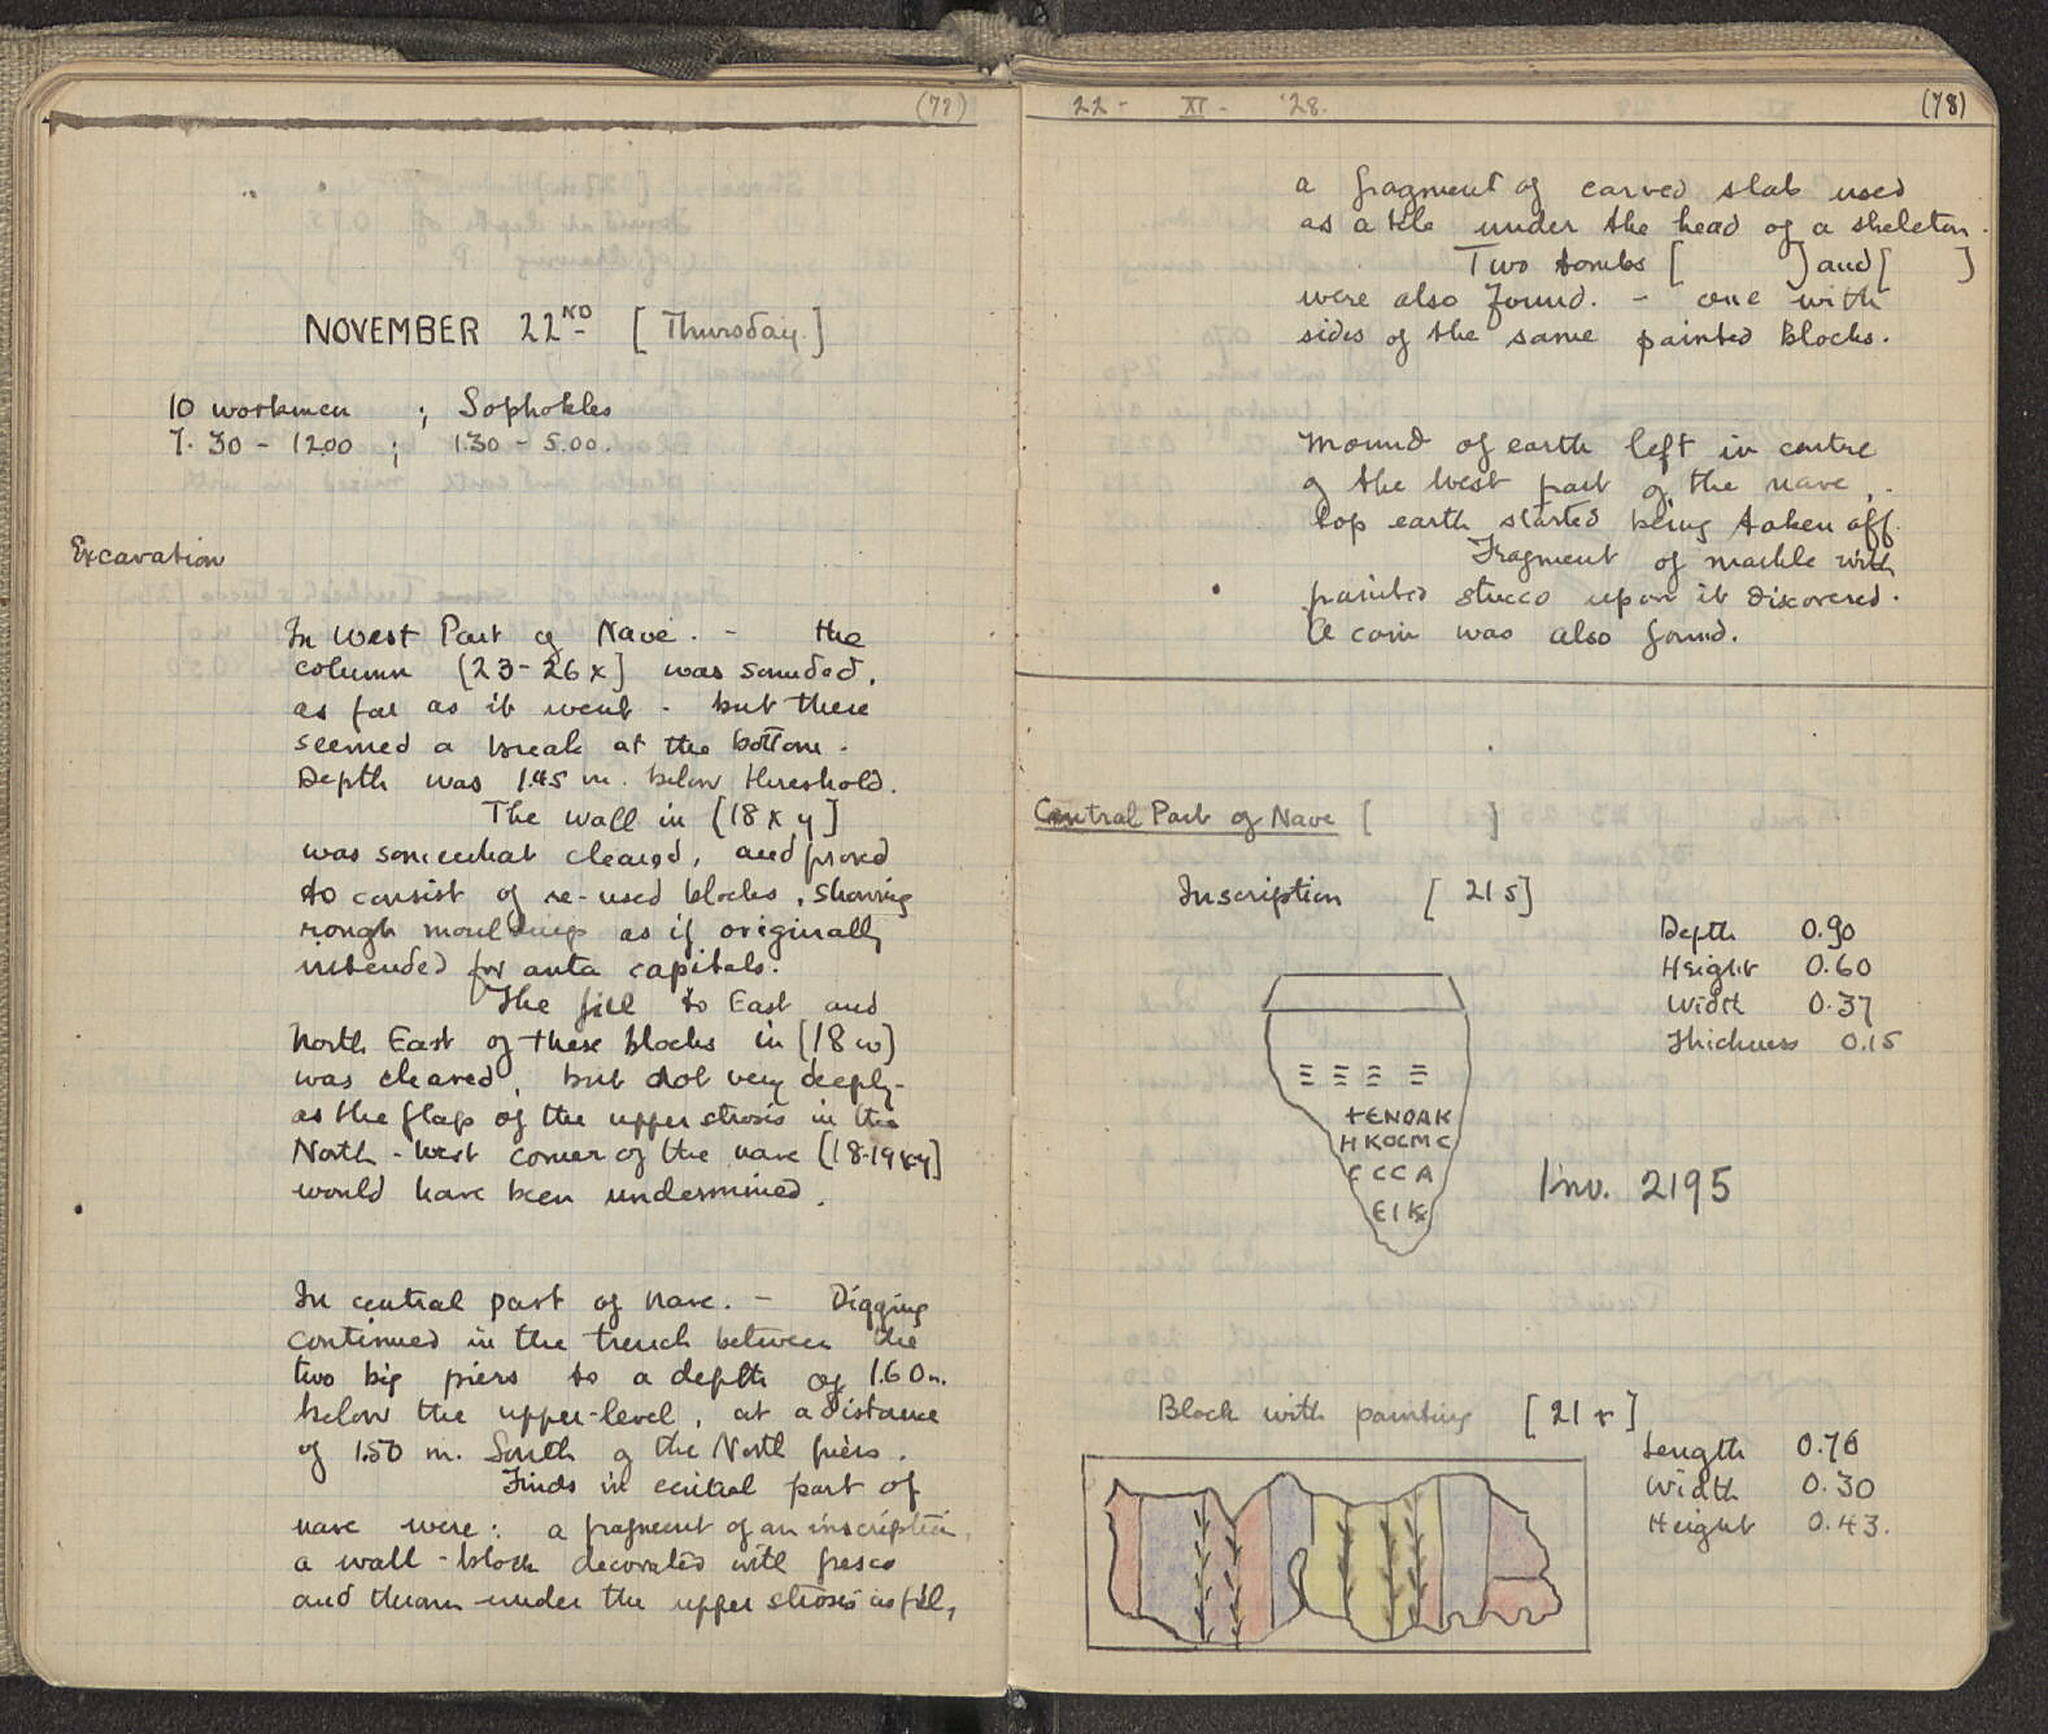 (77)
NOVEMBER 22ND [Thursday.]
10 workmen ; Sophokles
7.30 - 12.00 ; 1.30 - 5.00.
Excavation
In West Part of Nave. - the
column [23-26 x] was sounded,
as far as it went - but there
seemed a break at the bottom.
Depth was 1.45 m. below threshold.
The wall in [18 x, y]
was somewhat cleared, and proved
to consist of re-used blocks, showing
rough mouldings as if originally
intended for anta capitals.
The fill to East and
North East of these blocks in [18 w]
was cleared, but not very deeply -
as the flap of the upper strosis in the
North-West corner of the nave [18-19 x-y]
would have been undermined.
In central part of nave. - Digging
continued in the trench between the
two big piers to a depth of 1.60 m.
below the upper-level, at a distance
of 1.50 m. South of the North piers.
Finds in central part of
nave were: a fragment of an inscription,
a wall-block decorated with fresco
and thrown under the upper strosis as fill,
22 - XI - '28. (78)
a fragment of carved slab used
as a tile under the head of a skeleton.
Two tombs [ ] and [ ]
were also found. - one with
sides of the same painted blocks.
Mound of earth left in centre
of the West part of the nave,
top earth started being taken off.
Fragment of marble with
painted stucco upon it discovered.
A coin was also found.
Central Part of Nave [ ]
Inscription [21 s]
Depth 0.90
Height 0.60
Width 0.37
Thickness 0.15
+ENOAK
HKOCMC
CCCA
EIK
Inv. 2195
Block with painting [21 r]
Length 0.76
Width 0.30
Height 0.43.